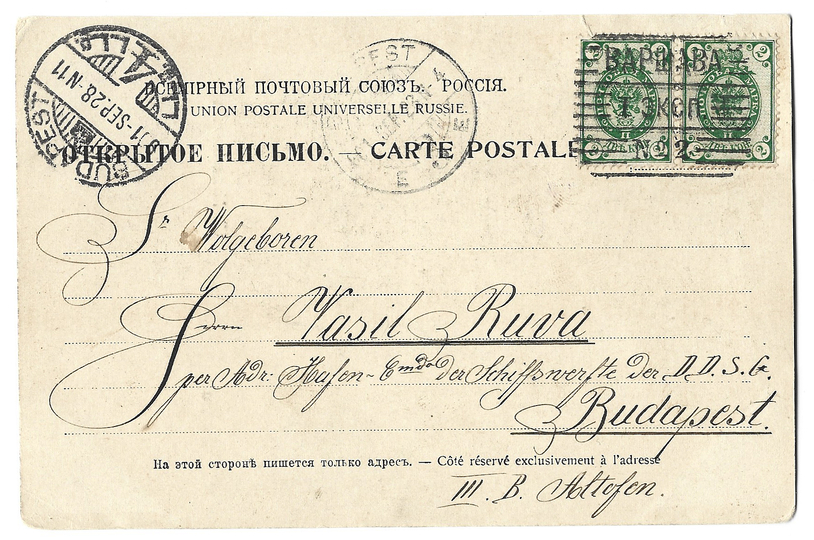 ВСЕМІРНЫЙ ПОЧТОВЫЙ СОЮЗЪ. РОССІЯ.
UNION POSTALE UNIVERSELLE RUSSIE.
ОТКРЫТОЕ ПИСЬМО. — CARTE POSTALE
ВАРШАВА
I ЭКСП.
№ 2
2 2
2 2
BUDAPEST
SEP. 28 - N11
Sr Wolgeboren
Herrn Vasil Ruva
per Adr: Hafen - Cmdo der Schiffswerfte der D. D. S. G.
Budapest.
На этой сторонѣ пишется только адресъ. — Côté réservé exclusivement à l'adresse
III. B. Altofen.